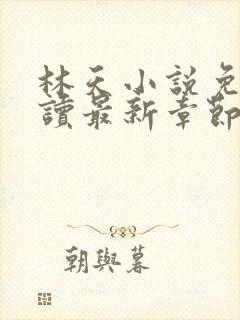 林天小说免
讀最新章節
朝與暮